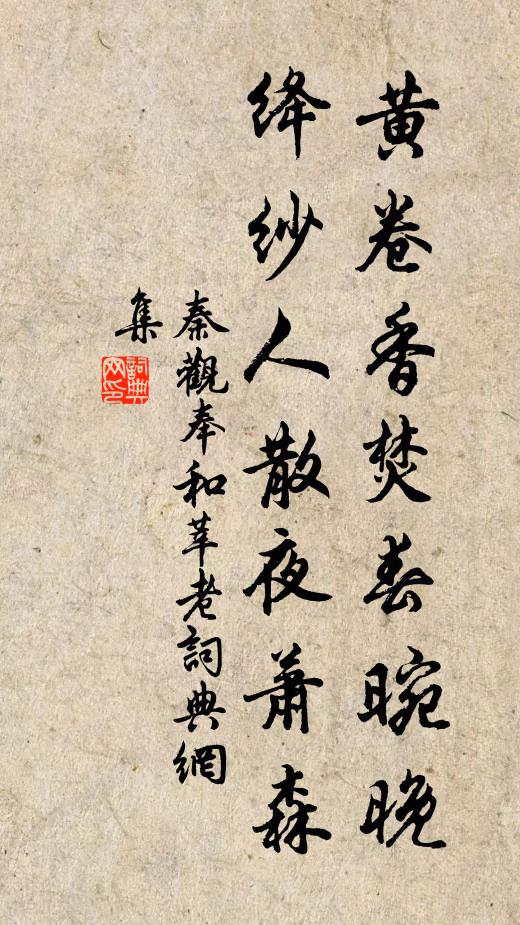 黄卷香焚春晼晚
绛纱人散夜萧森
秦觀奉和莘老詞典網
集
詞典
网印